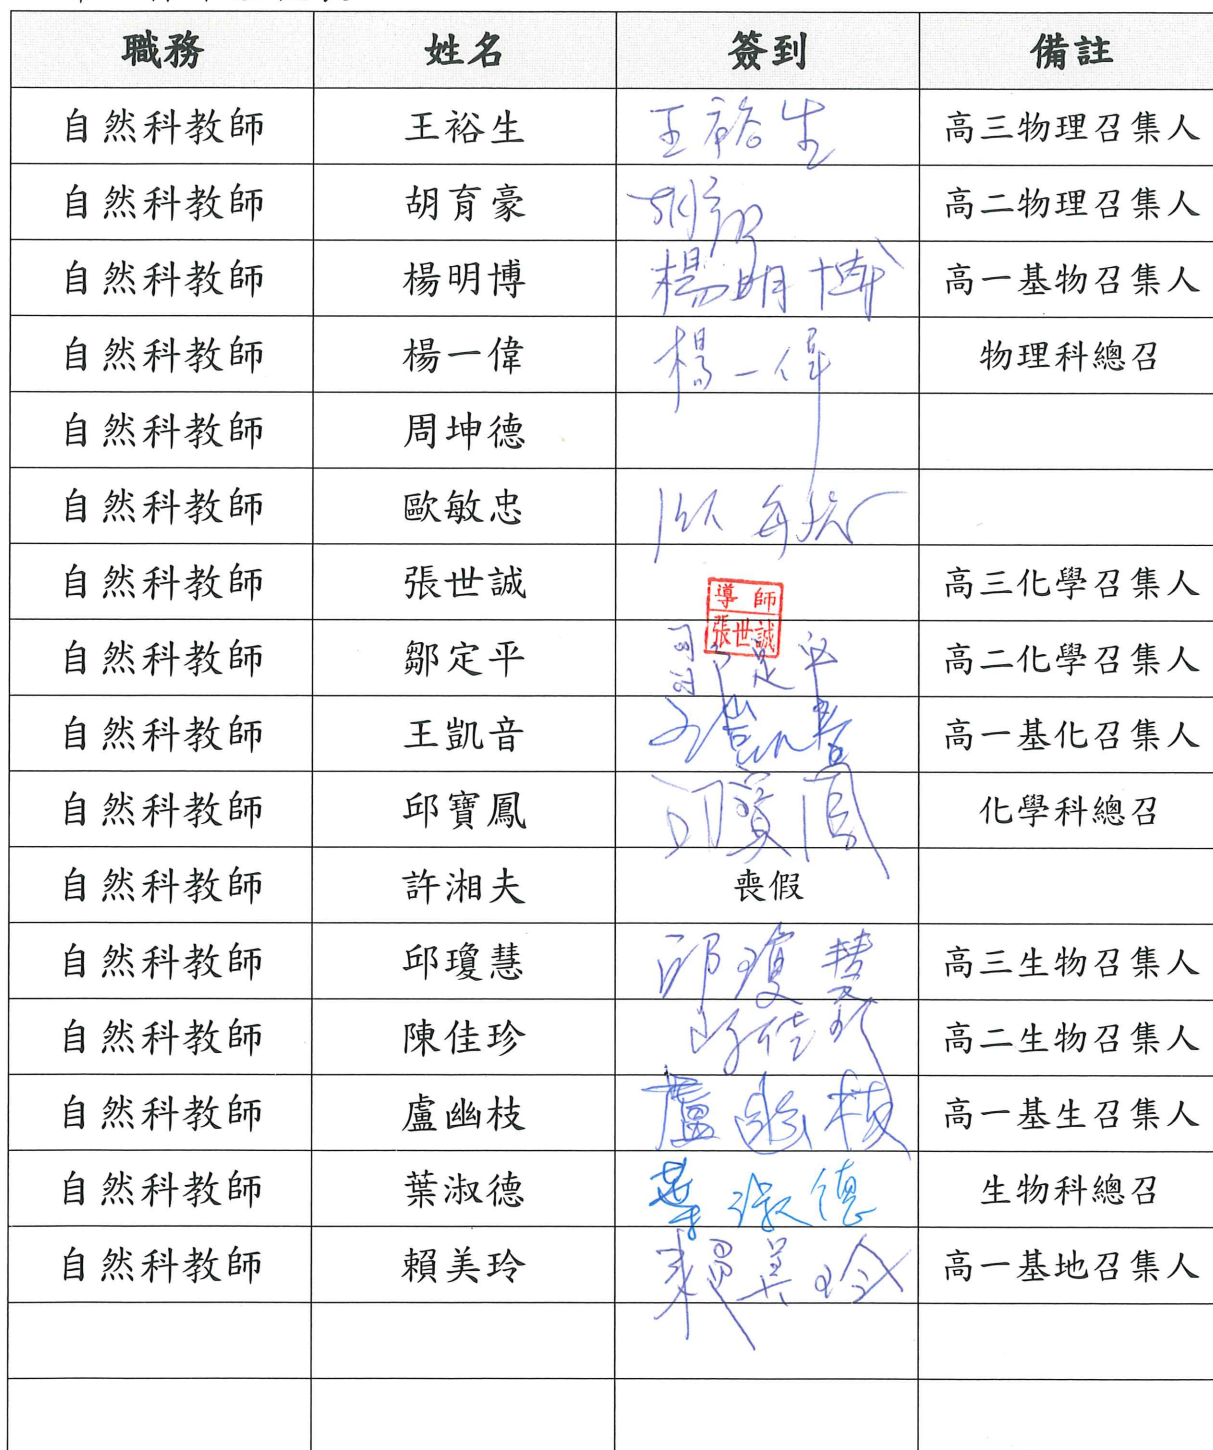 職務 姓名 簽到 備註
自然科教師 王裕生 王裕生 高三物理召集人
自然科教師 胡育豪 高二物理召集人
自然科教師 楊明博 楊明博 高一基物召集人
自然科教師 楊一偉 楊一偉 物理科總召
自然科教師 周坤德
自然科教師 歐敏忠 歐敏忠
自然科教師 張世誠 導師 張世誠 高三化學召集人
自然科教師 鄒定平 鄒定平 高二化學召集人
自然科教師 王凱音 王凱音 高一基化召集人
自然科教師 邱寶鳳 邱寶鳳 化學科總召
自然科教師 許湘夫 喪假
自然科教師 邱瓊慧 邱瓊慧 高三生物召集人
自然科教師 陳佳珍 陳佳珍 高二生物召集人
自然科教師 盧幽枝 盧幽枝 高一基生召集人
自然科教師 葉淑德 葉淑德 生物科總召
自然科教師 賴美玲 賴美玲 高一基地召集人